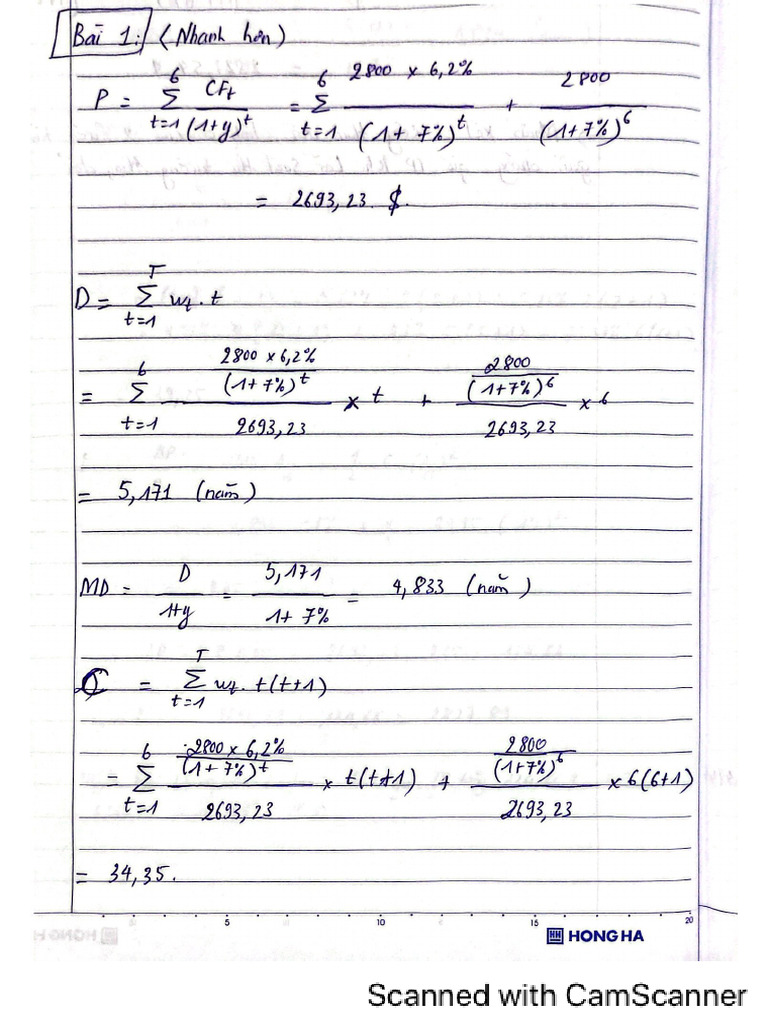 Bài 1: (Nhanh hơn)
P = 6∑t=1 CFt/(1+y)^t = 6∑t=1 2800 x 6,2%/(1+7%)^t + 2800/(1+7%)^6
= 2693,23 $.
D = T∑t=1 wt.t
= 6∑t=1 (2800 x 6,2%/(1+7%)^t)/2693,23 x t + (2800/(1+7%)^6)/2693,23 x 6
= 5,171 (năm)
MD = D/1+y = 5,171/1+7% = 4,833 (năm)
C = T∑t=1 wt.t(t+1)
= 6∑t=1 (2800 x 6,2%/(1+7%)^t)/2693,23 x t(t+1) + (2800/(1+7%)^6)/2693,23 x 6(6+1)
= 34,35.
5 10 15 20
HH HONG HA
Scanned with CamScanner